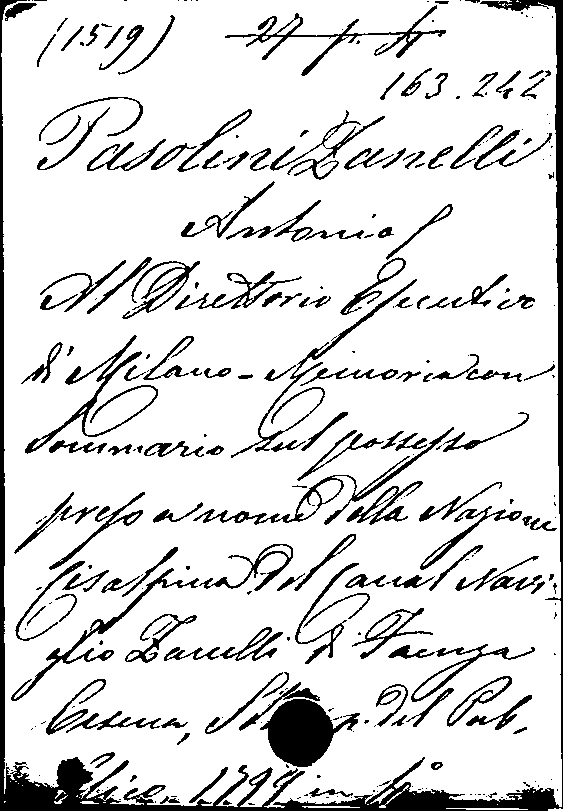 (1519) 27 p. 4º
163.242
Pasolini Zanelli
Antonio
Al Direttorio Esecutivo
di Milano - Memoria con
Sommario sul possesso
preso a nome della Nazione
Cisalpina del Canal Navi-
glio Zanelli di Faenza
Cesena, p. del Pub-
blico, 1797 in 4º